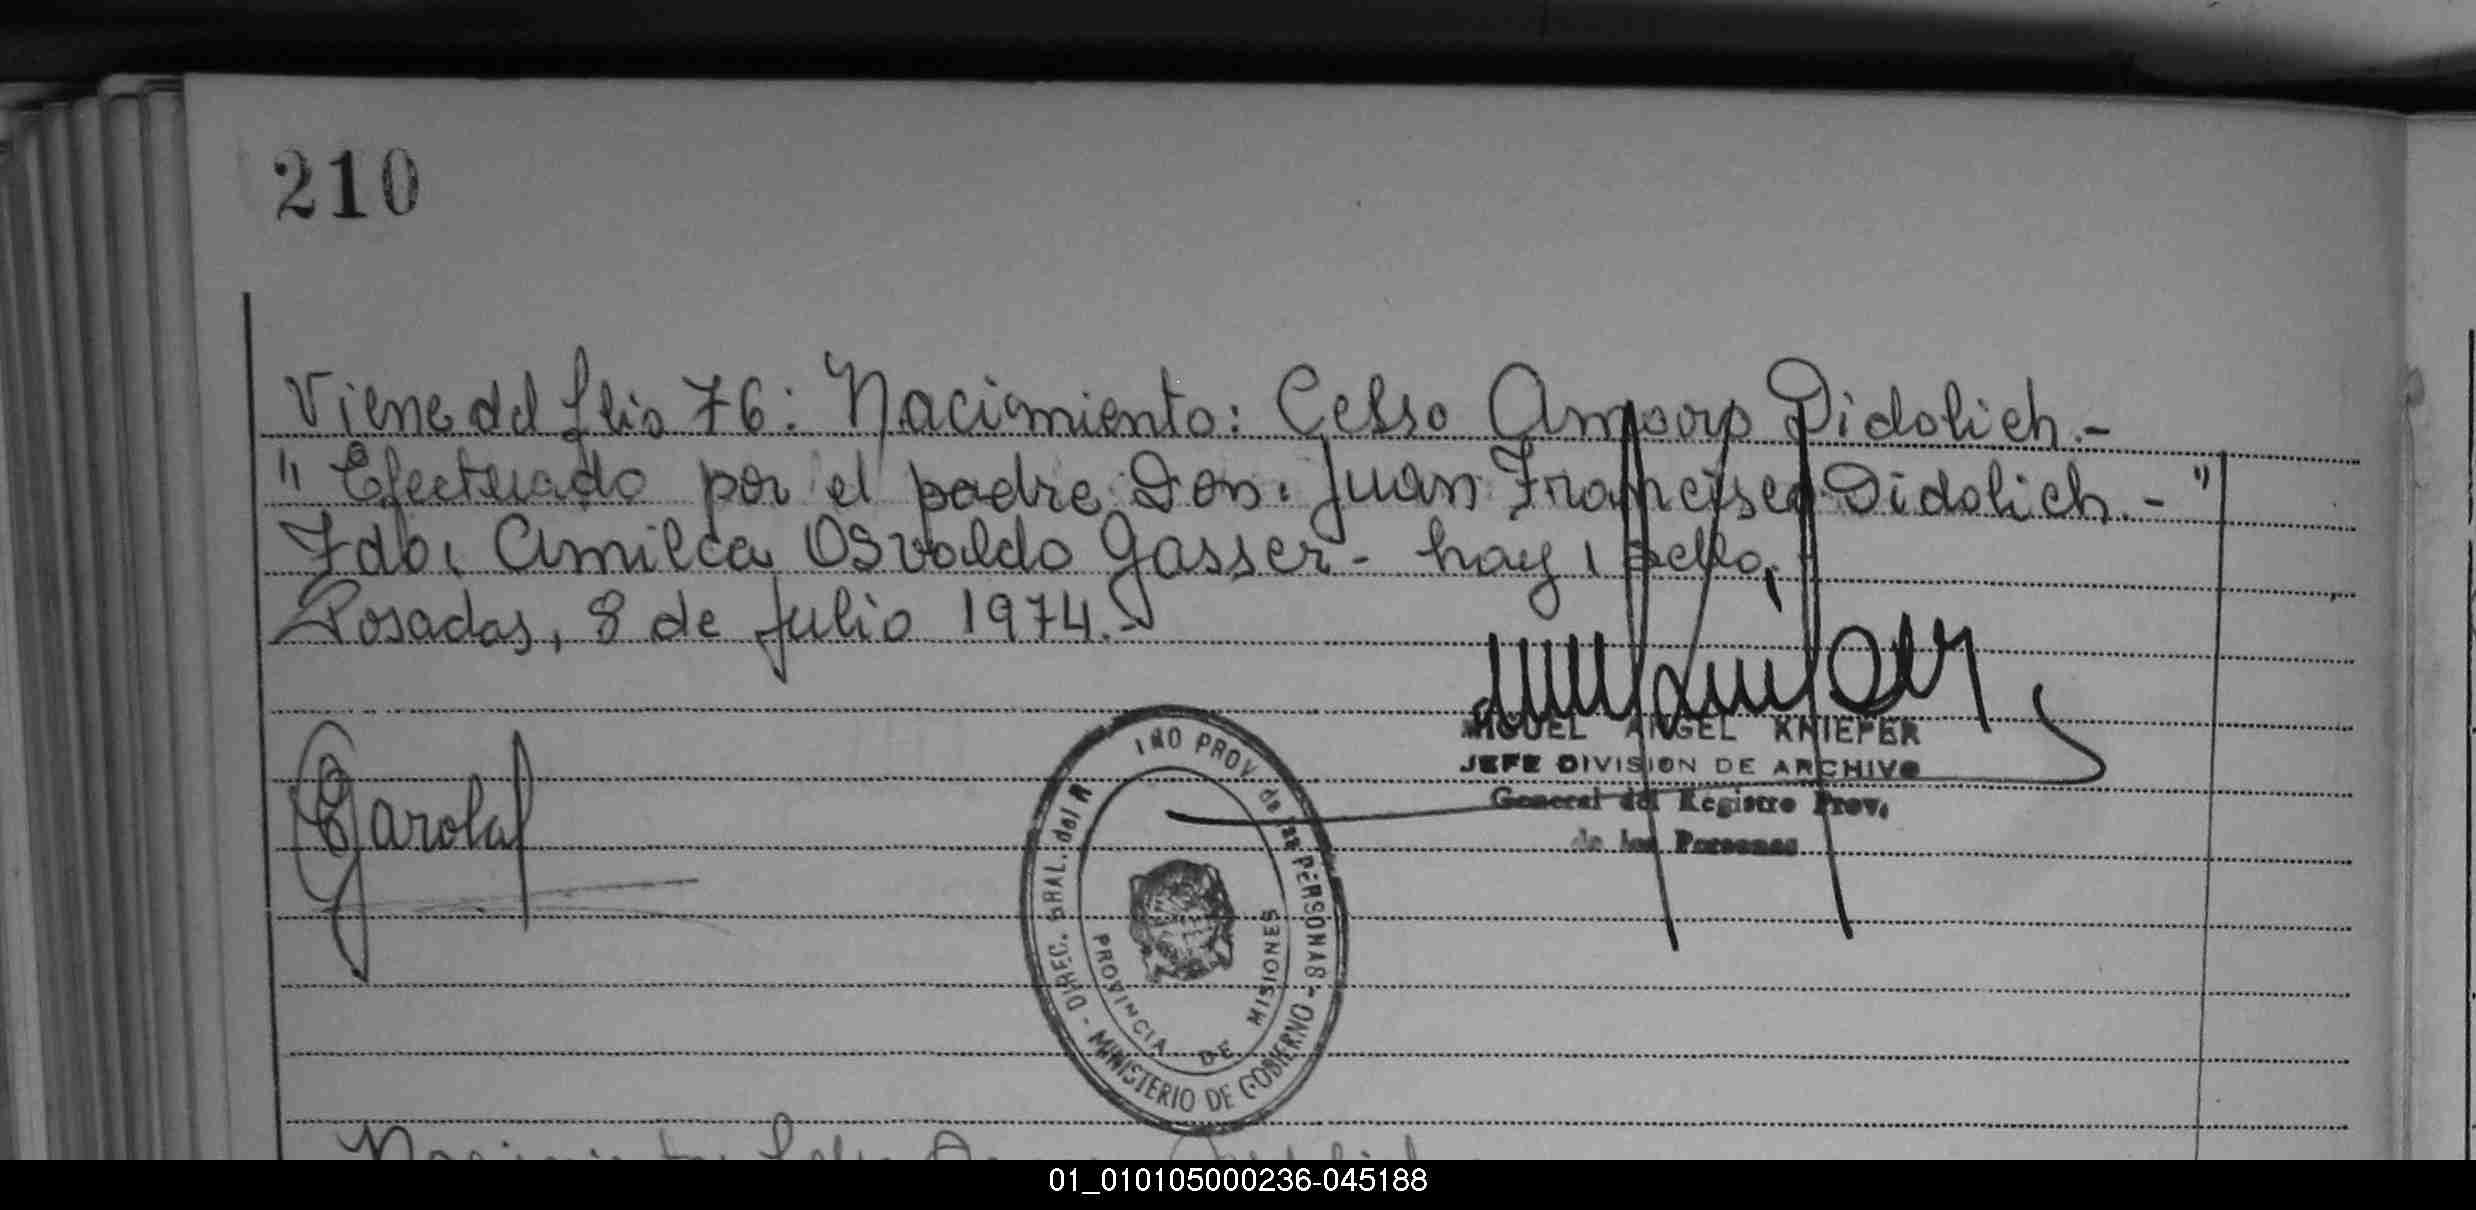 210
Viene del flio 76: Nacimiento: Celso Didolich.-
" Efectuado por el padre Don. Juan Francisco Didolich.-"
Fdo. Amilca Osvaldo Gasser - hay 1 sello.
Posadas, 8 de Julio 1974.-
MIGUEL ANGEL KNIEFER
JEFE DIVISION DE ARCHIVO
General del Registro Prov.
de las Personas
DIREC. GRAL. del R INO PROV de las PERSONAS - MINISTERIO DE GOBIERNO -
PROVINCIA DE MISIONES
01_010105000236-045188